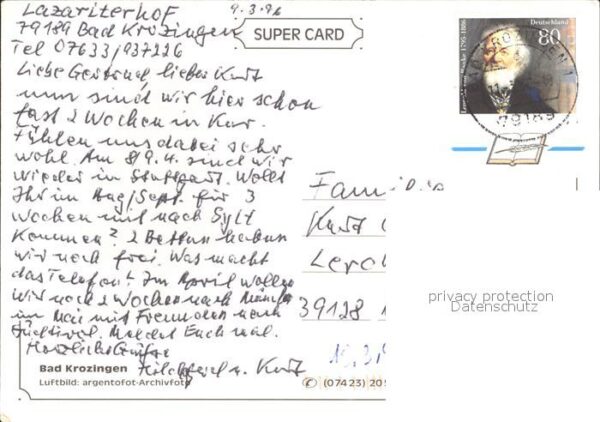 Lazariterhof 9.3.96
79189 Bad Krozingen
Tel 07633/937226
SUPER CARD
Deutschland
80
79189
Liebe Gertraud, lieber Kurt
nun sind wir hier schon
fast 2 Wochen in Kur.
Fühlen uns dabei sehr
wohl. Am 8/9.4. sind wir
wieder in Stuttgart. Wollt
Ihr im Aug/Sept. für 3
Wochen mit nach Sylt
kommen? 2 Betten haben
wir noch frei. Was macht
das Telefon? Im April wollen
wir noch 2 Wochen nach
im Mai mit Freunden nach
Südtirol. Meldet Euch mal.
Herzliche Grüße
u. Kurt
Familie
Kurt
39128
privacy protection
Datenschutz
Bad Krozingen
Luftbild: argentofot-Archivfoto
(07423) 20